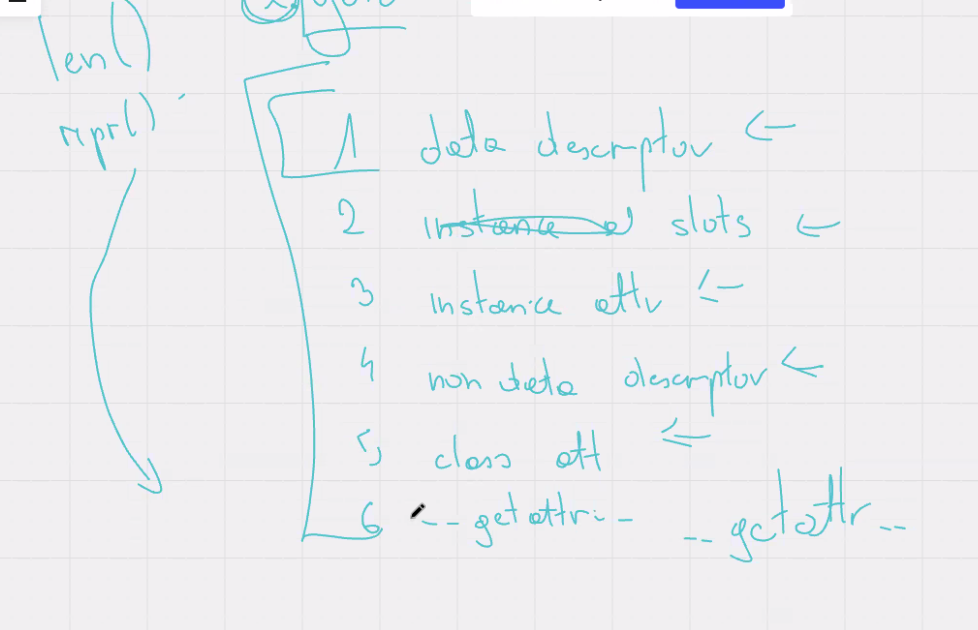 len()
repr()
1 data descriptor
2 slots
3 instance attr
4 non data descriptor
5 class att
6 __getattr__ __getattr__